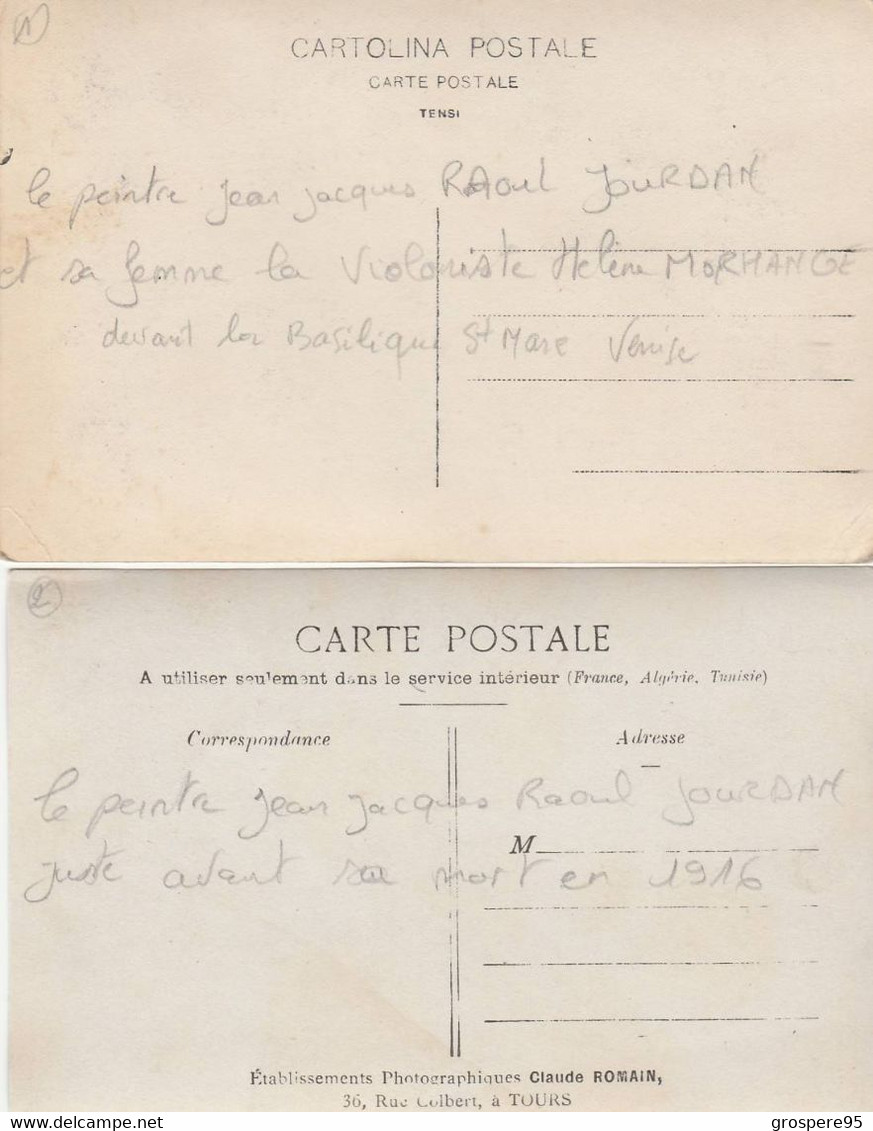 1
CARTOLINA POSTALE
CARTE POSTALE
TENSI
le peintre Jean Jacques RAoul JOURDAN
et sa femme la Violoniste Hélène MORHANGE
devant la Basilique St Marc Venise
2
CARTE POSTALE
A utiliser seulement dans le service intérieur (France, Algérie, Tunisie)
Correspondance
Adresse
le peintre Jean Jacques Raoul JOURDAN
M
juste avant sa mort en 1916
Établissements Photographiques Claude ROMAIN,
36, Rue Colbert, à TOURS
grospere95